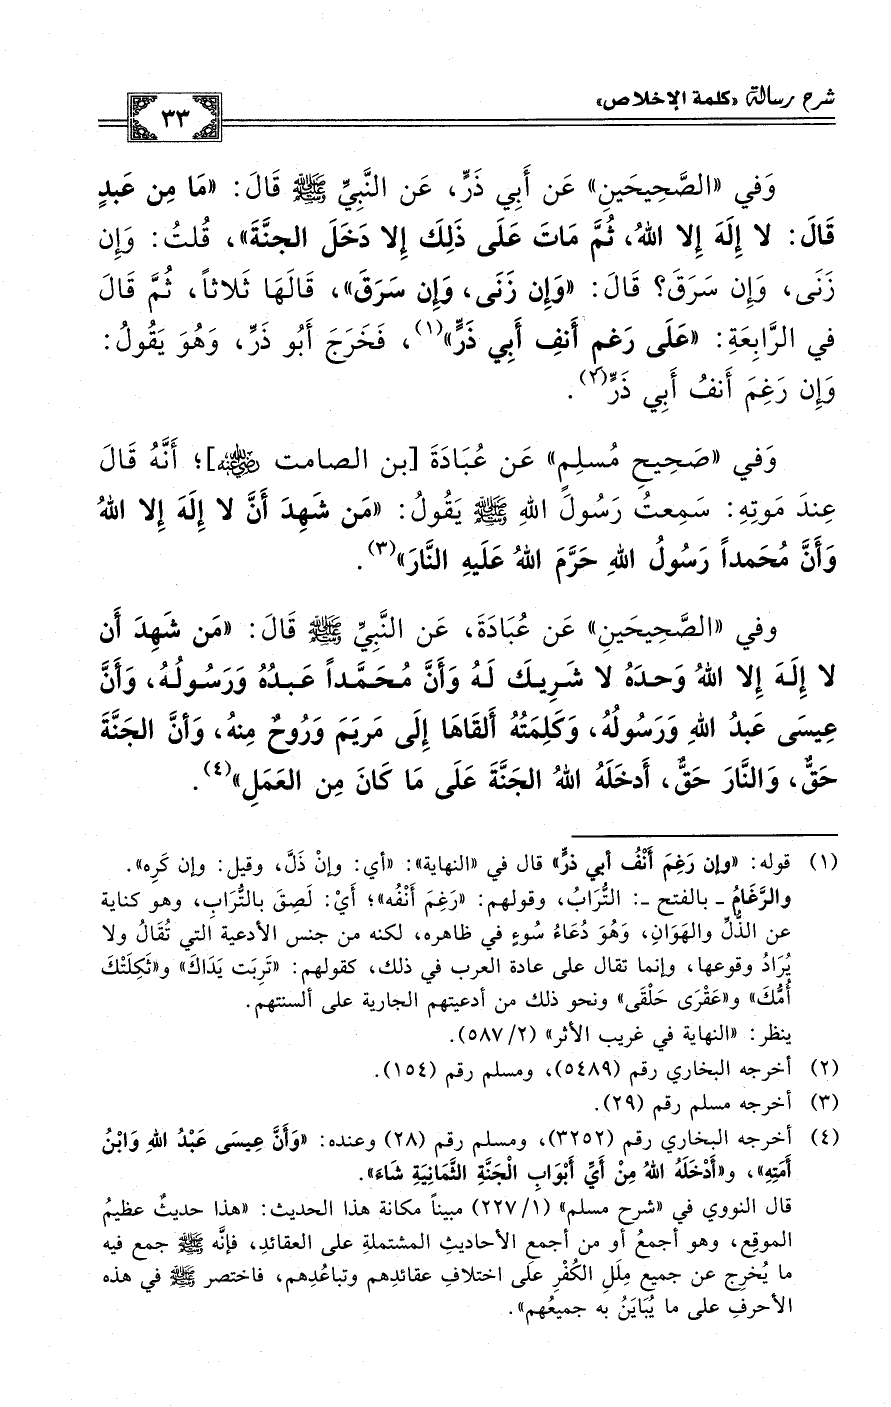 شرح رسالة «كلمة الإخلاص»
٣٣
وَفي «الصَّحِيحَينِ» عَن أَبِي ذَرٍّ، عَن النَّبِيِّ ﷺ قَالَ: «مَا مِن عَبدٍ
قَالَ: لا إِلَهَ إلا اللهُ، ثُمَّ مَاتَ عَلَى ذَلِكَ إِلا دَخَلَ الجنَّةَ»، قُلتُ: وَإِن
زَنَى، وَإِن سَرَقَ؟ قَالَ: «وَإِن زَنَى، وَإِن سَرَقَ»، قَالَهَا ثَلاثاً، ثُمَّ قَالَ
في الرَّابِعَةِ: «عَلَى رَغمِ أَنفِ أَبِي ذَرٍّ»(١)، فَخَرَجَ أَبُو ذَرٍّ، وَهُوَ يَقُولُ:
وَإِن رَغِمَ أَنفُ أَبِي ذَرٍّ(٢).
وَفي «صَحِيحِ مُسلِمٍ» عَن عُبَادَةَ [بن الصامت رضي الله عنه]؛ أَنَّهُ قَالَ
عِندَ مَوتِهِ: سَمِعتُ رَسُولَ اللهِ ﷺ يَقُولُ: «مَن شَهِدَ أَنَّ لا إِلَهَ إِلا اللهُ
وَأَنَّ مُحَمداً رَسُولُ اللهِ حَرَّمَ اللهُ عَلَيهِ النَّارَ»(٣).
وفي «الصَّحِيحَينِ» عَن عُبَادَةَ، عَن النَّبِيِّ ﷺ قَالَ: «مَن شَهِدَ أَن
لا إِلَهَ إلا اللهُ وَحدَهُ لا شَرِيكَ لَهُ وَأَنَّ مُحَمَّداً عَبدُهُ وَرَسُولُهُ، وَأَنَّ
عِيسَى عَبدُ اللهِ وَرَسُولُهُ، وَكَلِمَتُهُ أَلقَاهَا إِلَى مَريَمَ وَرُوحٌ مِنهُ، وَأنَّ الجَنَّةَ
حَقٌّ، وَالنَّارَ حَقٌّ، أَدخَلَهُ اللهُ الجَنَّةَ عَلَى مَا كَانَ مِن العَمَلِ»(٤).
(١) قوله: «وإن رَغِمَ أَنْفُ أبي ذرٍّ» قال في «النهاية»: «أي: وإنْ ذَلَّ، وقيل: وإن كَرِه».
والرَّغَامُ ـ بالفتح ـ: التُّرَابُ، وقولهم: «رَغِمَ أَنْفُه»؛ أَيْ: لَصِقَ بالتُّرَابِ، وهو كناية
عن الذُّلِّ والهَوَانِ، وَهُوَ دُعَاءُ سُوءٍ في ظاهره، لكنه من جنس الأدعية التي تُقَالُ ولا
يُرَادُ وقوعها، وإنما تقال على عادة العرب في ذلك، كقولهم: «تَرِبَت يَدَاكَ» و«ثَكِلَتْكَ
أُمُّكَ» و«عَقْرَى حَلْقَى» ونحو ذلك من أدعيتهم الجارية على ألسنتهم.
ينظر: «النهاية في غريب الأثر» (٢/ ٥٨٧).
(٢) أخرجه البخاري رقم (٥٤٨٩)، ومسلم رقم (١٥٤).
(٣) أخرجه مسلم رقم (٢٩).
(٤) أخرجه البخاري رقم (٣٢٥٢)، ومسلم رقم (٢٨) وعنده: «وَأَنَّ عِيسَى عَبْدُ اللهِ وَابْنُ
أَمَتِهِ»، و«أَدْخَلَهُ اللهُ مِنْ أَيِّ أَبْوَابِ الْجَنَّةِ الثَّمَانِيَةِ شَاءَ».
قال النووي في «شرح مسلم» (١/ ٢٢٧) مبيناً مكانة هذا الحديث: «هذا حديثٌ عظيمُ
الموقِعِ، وهو أجمعُ أو من أجمعِ الأحاديثِ المشتملةِ على العقائدِ، فإنَّه ﷺ جمع فيه
ما يُخرِج عن جميع مِلَلِ الكُفْرِ على اختلافِ عقائدِهم وتباعُدِهم، فاختصر ﷺ في هذه
الأحرفِ على ما يُبَايَنُ به جميعُهم».